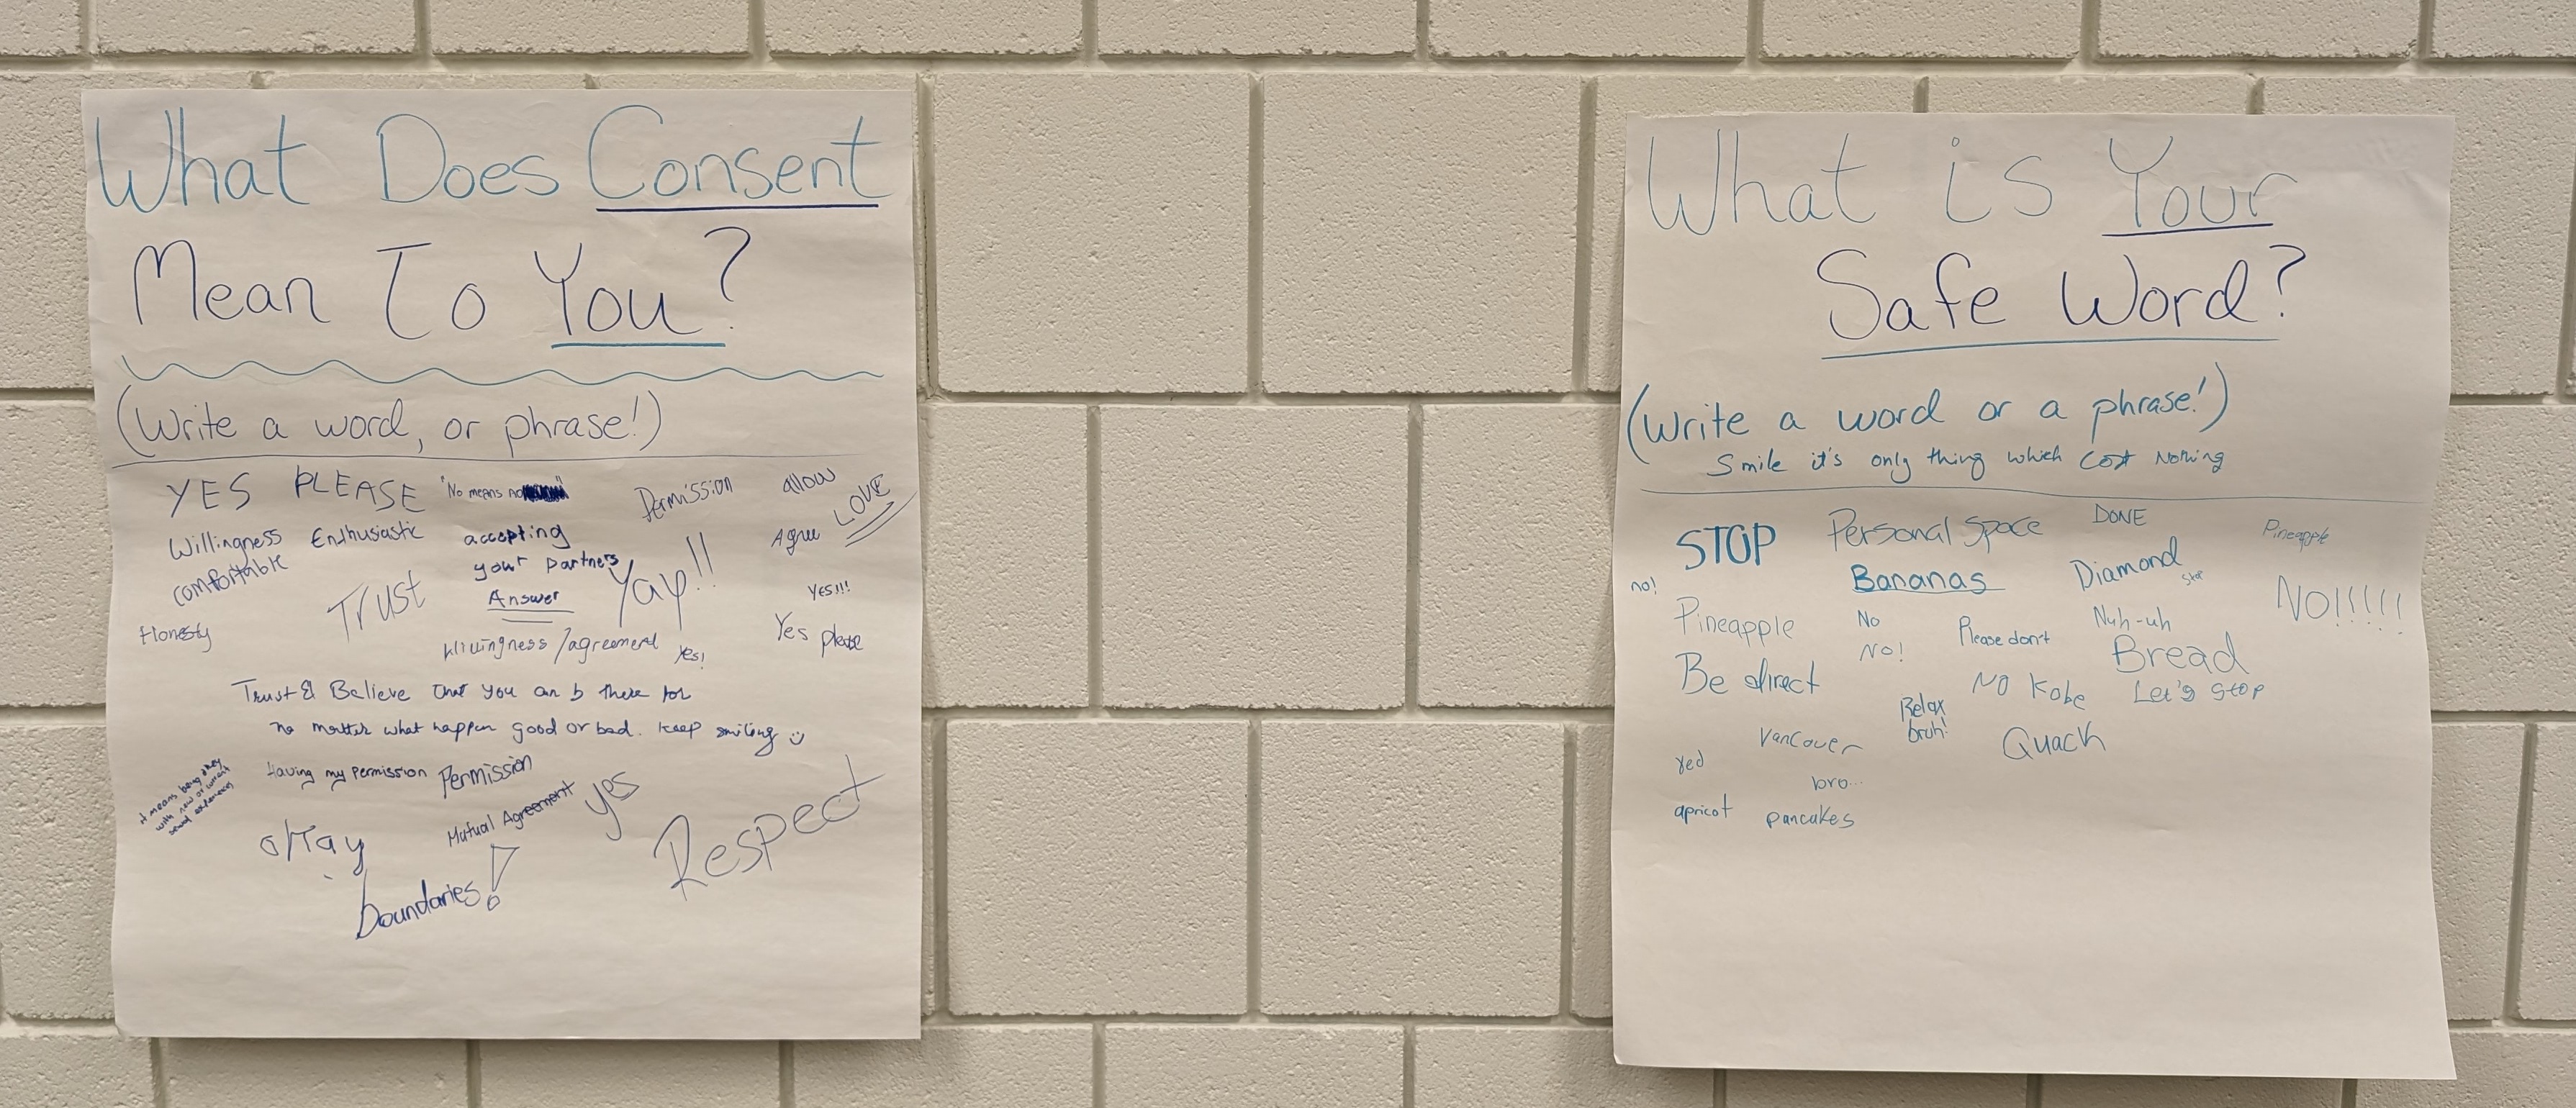 What Does Consent
Mean To You?
(Write a word, or phrase!)
YES PLEASE
"No means no
Permission
allow
LOVE
Willingness
Enthusiastic
accepting
your partners
Answer
Yay!!
Agree
comfortable
Trust
YES!!!
Honesty
Willingness/agreement
Yes!
Yes please
Trust & Believe that you can b there for
no matter what happen good or bad. Keep smiling
Having my permission
Permission
it means being okay
with new or
sexual experiences
Mutual Agreement
yes
Respect
okay
boundaries!
What is Your
Safe Word?
(Write a word or a phrase!)
Smile it's only thing which cost Nothing
STOP
Personal Space
DONE
Pineapple
no!
Bananas
Diamond
Stop
NO!!!!!
Pineapple
No
NO!
Please don't
Nuh-uh
Bread
Be direct
NO Kobe
Let's stop
Relax
bruh!
Vancouver
Quack
red
bro...
apricot
pancakes